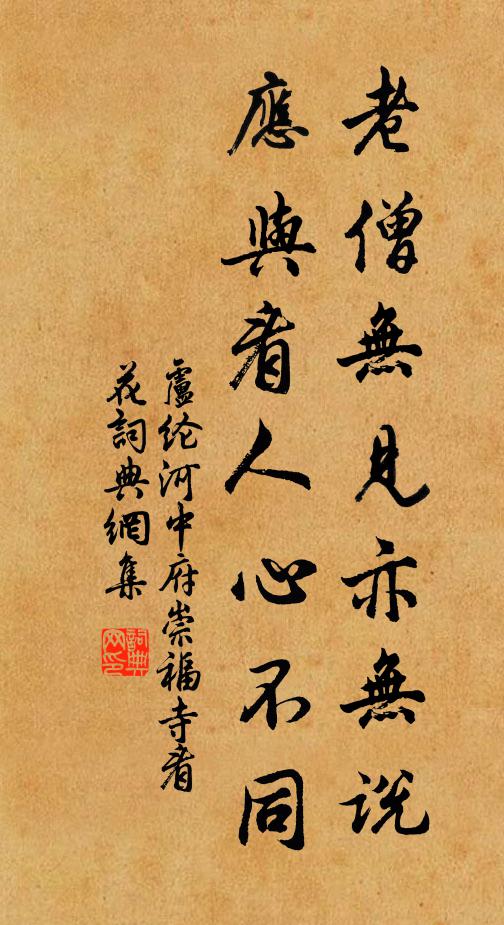 老僧無見亦無説
應與看人心不同
盧纶河中府崇福寺看
花詞典網集
詞典網印